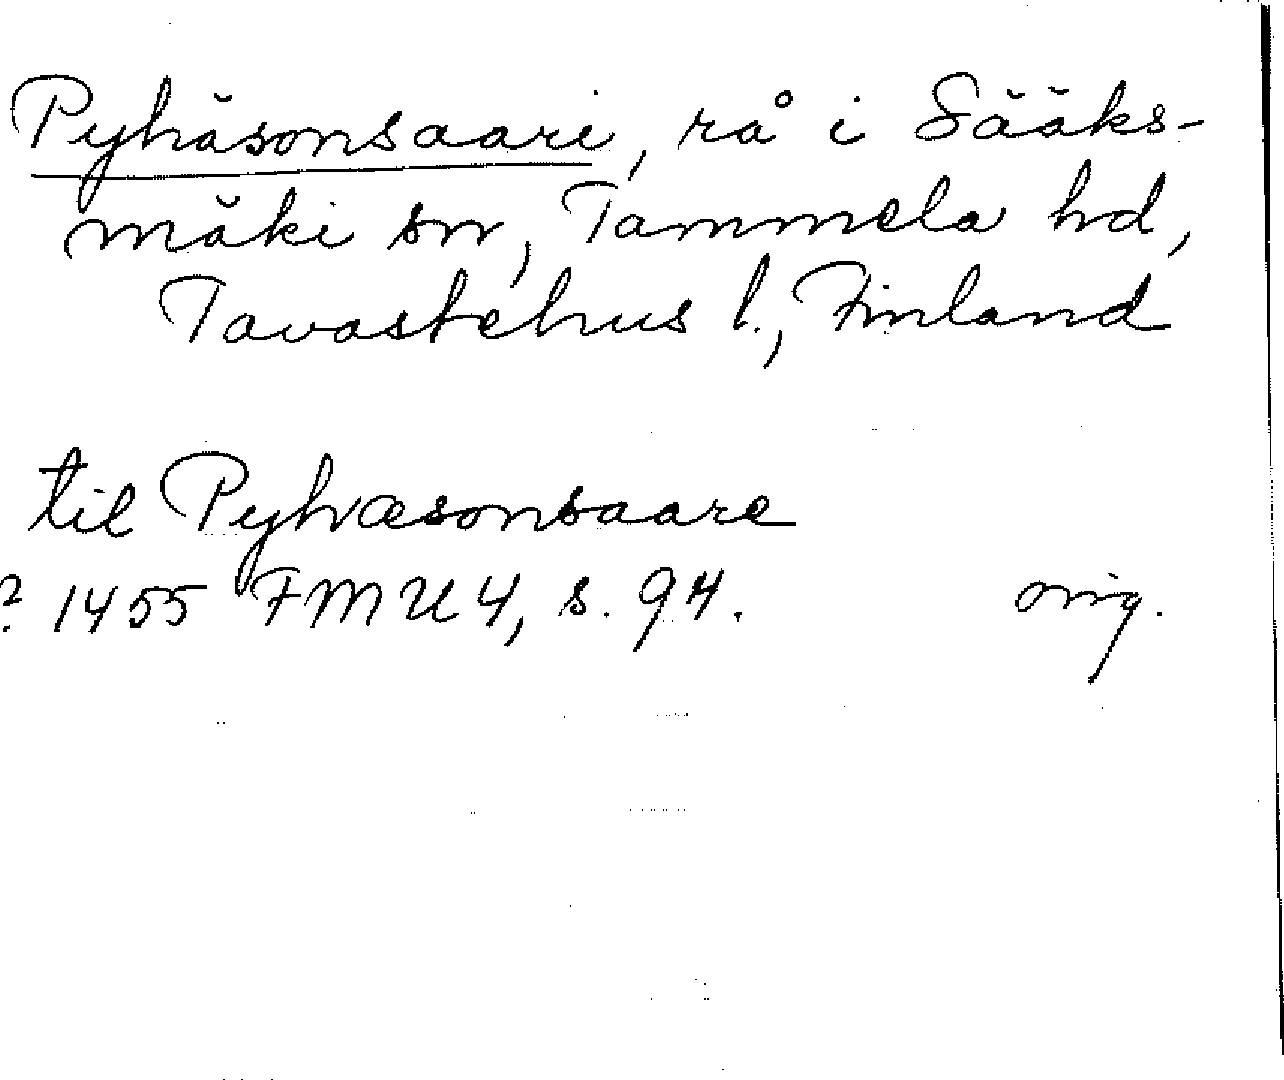 Pyhäsonsaari, rå i Sääks-
mäki sn, Tammela hd,
Tavastehus l., Finland
til Pyhæsonsaare
? 1455 FMU 4, s. 94. orig.